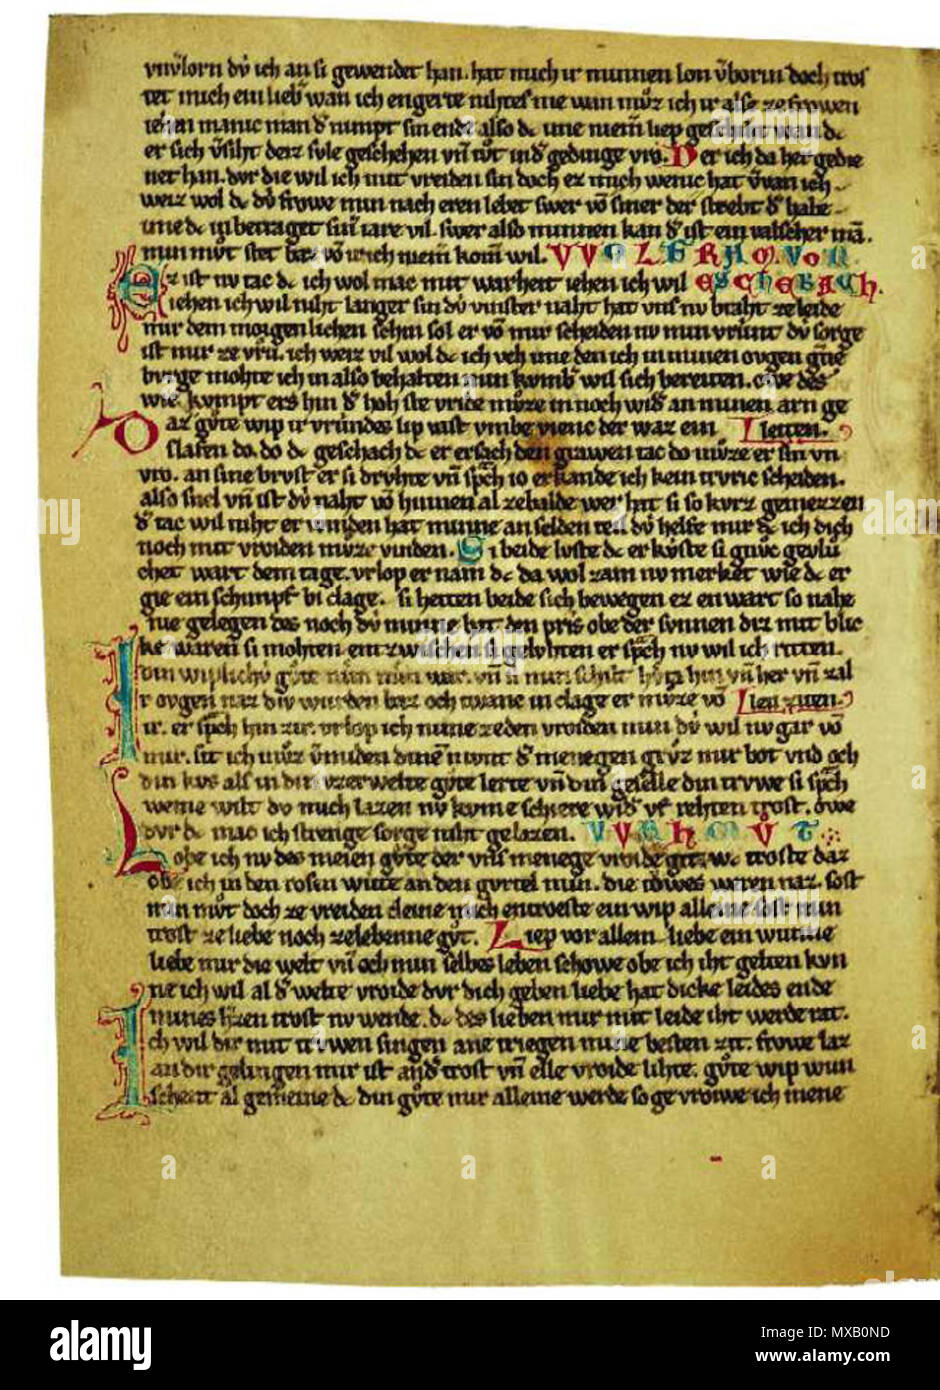 vnv̍lorn dv̍ ich an si gewendet han. hat mich ir minnen lon v̍born doch tros
tet mich ein lieb wan ich engerte nihtes nie wan mv̊z ich ir alse ze frowen
iehen manic man d̍ nimpt sin ende also dc
er sich v̍siht deiz svle geschehen vn̄ tv̊t in d̍ gedinge vro. Der ich da her gedie
net han. dvr die wil ich mit vreiden sin doch ez mich wenic hat v̍van ich
weiz wol dc dv̍ frowe min nach eren lebet swer vō siner der strebt d̍ habe
ime dc in betraget sin̄ iare vil. swer also minnen kan d̍ ist ein valscher mā.
min mv̊t stet baz vō ir ich niem̄ kom̄ wil. WOLFRAM. VON
Ez ist nv tac dc ich wol mac mit warheit iehen ich wil ESCHEBACH.
ichen ich wil niht langer sin dv̍ vinster naht hat vns nv braht ze leide
mir dem morgenlichen schin sol er vō mir scheiden nv min vrivnt dv̍ sorge
ist mir ze vrv̊. ich weiz vil wol dc ich
bvrge mohte ich in also behalten min kvmb̍ wil sich bereiten. owe des
wie. kvmpt ers hin d̍ hohste vride mv̊ze in noch wid̍ an minen arn ge
Daz gv̊te wip ir vrivndes lip vast vmbe vienc der waz ein leiten.
slafen do. do dc geschach dc er ersach den grawen tac do mv̊ze er sin vn
vro. an sine brvst er si drvhte vn̄ sp̄ch io erkande ich kein trvric scheiden.
also snel vn̄ ist dv̍ naht vō hinnen al zebalde wer hat si so kvrz gemezzen
d̍ tac wil niht erwinden hat minne an selden teil dv̍ helfe mir dc ich dich
noch mit vroiden mv̊ze vinden. Si beide lvste dc er kvste si gnv̊c gevlv̊
chet wart dem tage. vrlop er nam dc da wol zam nv merket wie dc er
gie ein schimpf bi clage. si hetten beide sich bewegen ez enwart so nahe
nie gelegen des noch dv̍ minne hat den pris obe der svnnen drz mit blic
ke waren si mohten entzwischen si gelvhten er sp̄ch nv wil ich ritten.
din wiplichv̍ gv̊te
ir ovgen naz div wurden baz och twanc in clage er mv̊ze vō lien zwen.
ir. er sp̄ch hin zir. vrlop ich nime zeden vroiden min dv̍ wil nv gar vō
mir. sit ich mv̊z v̍miden dinē mvnt d̍ menegen grv̊z mir bot vnd och
din kvs als in dir vzerwelte gv̊te lerte vn̄ din geselle din trvwe si sp̄ch
weme wilt dv mich lazen nv kvme schiere wid̍ vf rehten trost. owe
dvr dc mac ich strenge sorge niht gelazen. WAHSMVT
Lobe ich nv des meien gv̊te der vns menege vroide git. wc troste daz
obe ich in den rosen witte an den gvrtel min. die towes weren naz. sost
min mv̊t doch ze vreiden cleine mich entroeste ein wip alleine sost min
trost ze liebe noch ze lebenne gv̊t. Liep vor allem liebe ein wunne
liebe mir die welt vn̄ och min selbes leben schowe obe ich iht gelten kvn
ne ich wil al d̍ welte vroide dvr dich geben liebe hat dicke leides ende
mines h̄zen trost nv wende. dc des lieben mir mit leide iht werde rat.
Ich wil dir mit trvwen singen ane triegen mine besten zit. frowe laz
an dir gelingen mir ist and̍ trost vn̄ elle vroide lihte. gv̊te wip wun
schent al gemeine dc din gv̊te mir alleine werde so ge vroiwe ich mene
alamy
Image ID: MXB0ND
www.alamy.com